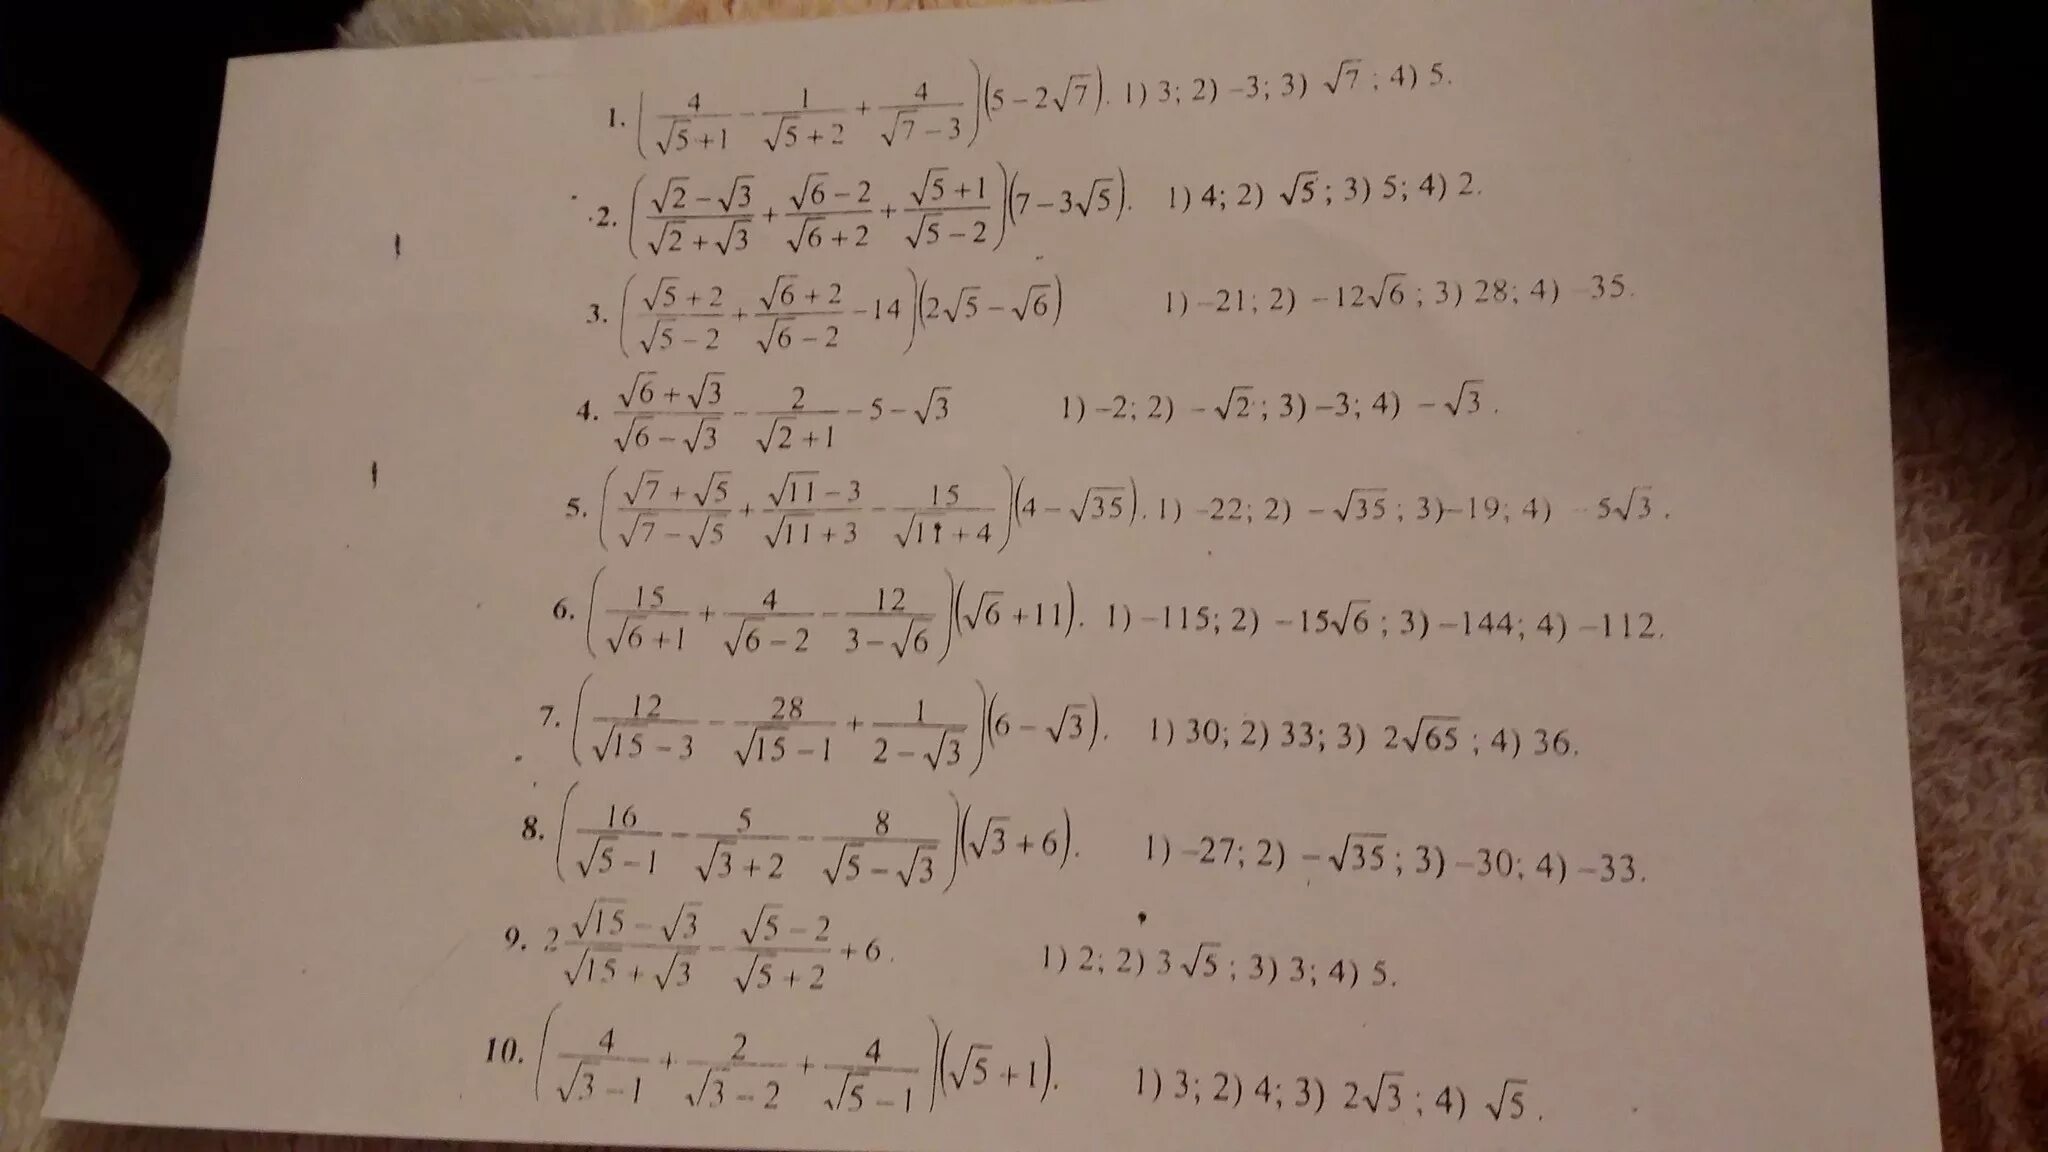 1. (4/(√5+1) − 1/(√5+2) + 4/(√7−3))(5−2√7). 1) 3; 2) –3; 3) √7; 4) 5.
2. ((√2−√3)/(√2+√3) + (√6−2)/(√6+2) + (√5+1)/(√5−2))(7−3√5). 1) 4; 2) √5; 3) 5; 4) 2.
3. ((√5+2)/(√5−2) + (√6+2)/(√6−2) −14)(2√5−√6) 1) –21; 2) −12√6; 3) 28; 4) –35.
4. (√6+√3)/(√6−√3) − 2/(√2+1) −5−√3 1) –2; 2) −√2; 3) –3; 4) −√3.
5. ((√7+√5)/(√7−√5) + (√11−3)/(√11+3) − 15/(√11+4))(4−√35). 1) -22; 2) −√35; 3)–19; 4) −5√3.
6. (15/(√6+1) + 4/(√6−2) − 12/(3−√6))(√6+11). 1) –115; 2) −15√6; 3) –144; 4) –112.
7. (12/(√15−3) − 28/(√15−1) + 1/(2−√3))(6−√3). 1) 30; 2) 33; 3) 2√65; 4) 36.
8. (16/(√5−1) − 5/(√3+2) − 8/(√5−√3))(√3+6). 1) –27; 2) −√35; 3) –30; 4) –33.
9. 2 (√15−√3)/(√15+√3) − (√5−2)/(√5+2) +6. 1) 2; 2) 3√5; 3) 3; 4) 5.
10. (4/(√3−1) + 2/(√3−2) + 4/(√5−1))(√5+1). 1) 3; 2) 4; 3) 2√3; 4) √5.